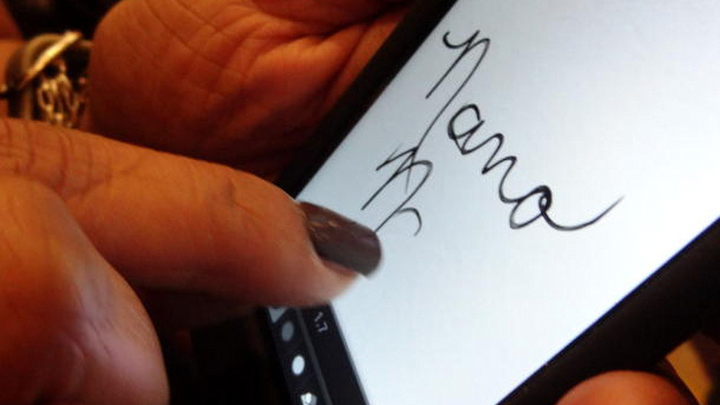 Nana
1.7